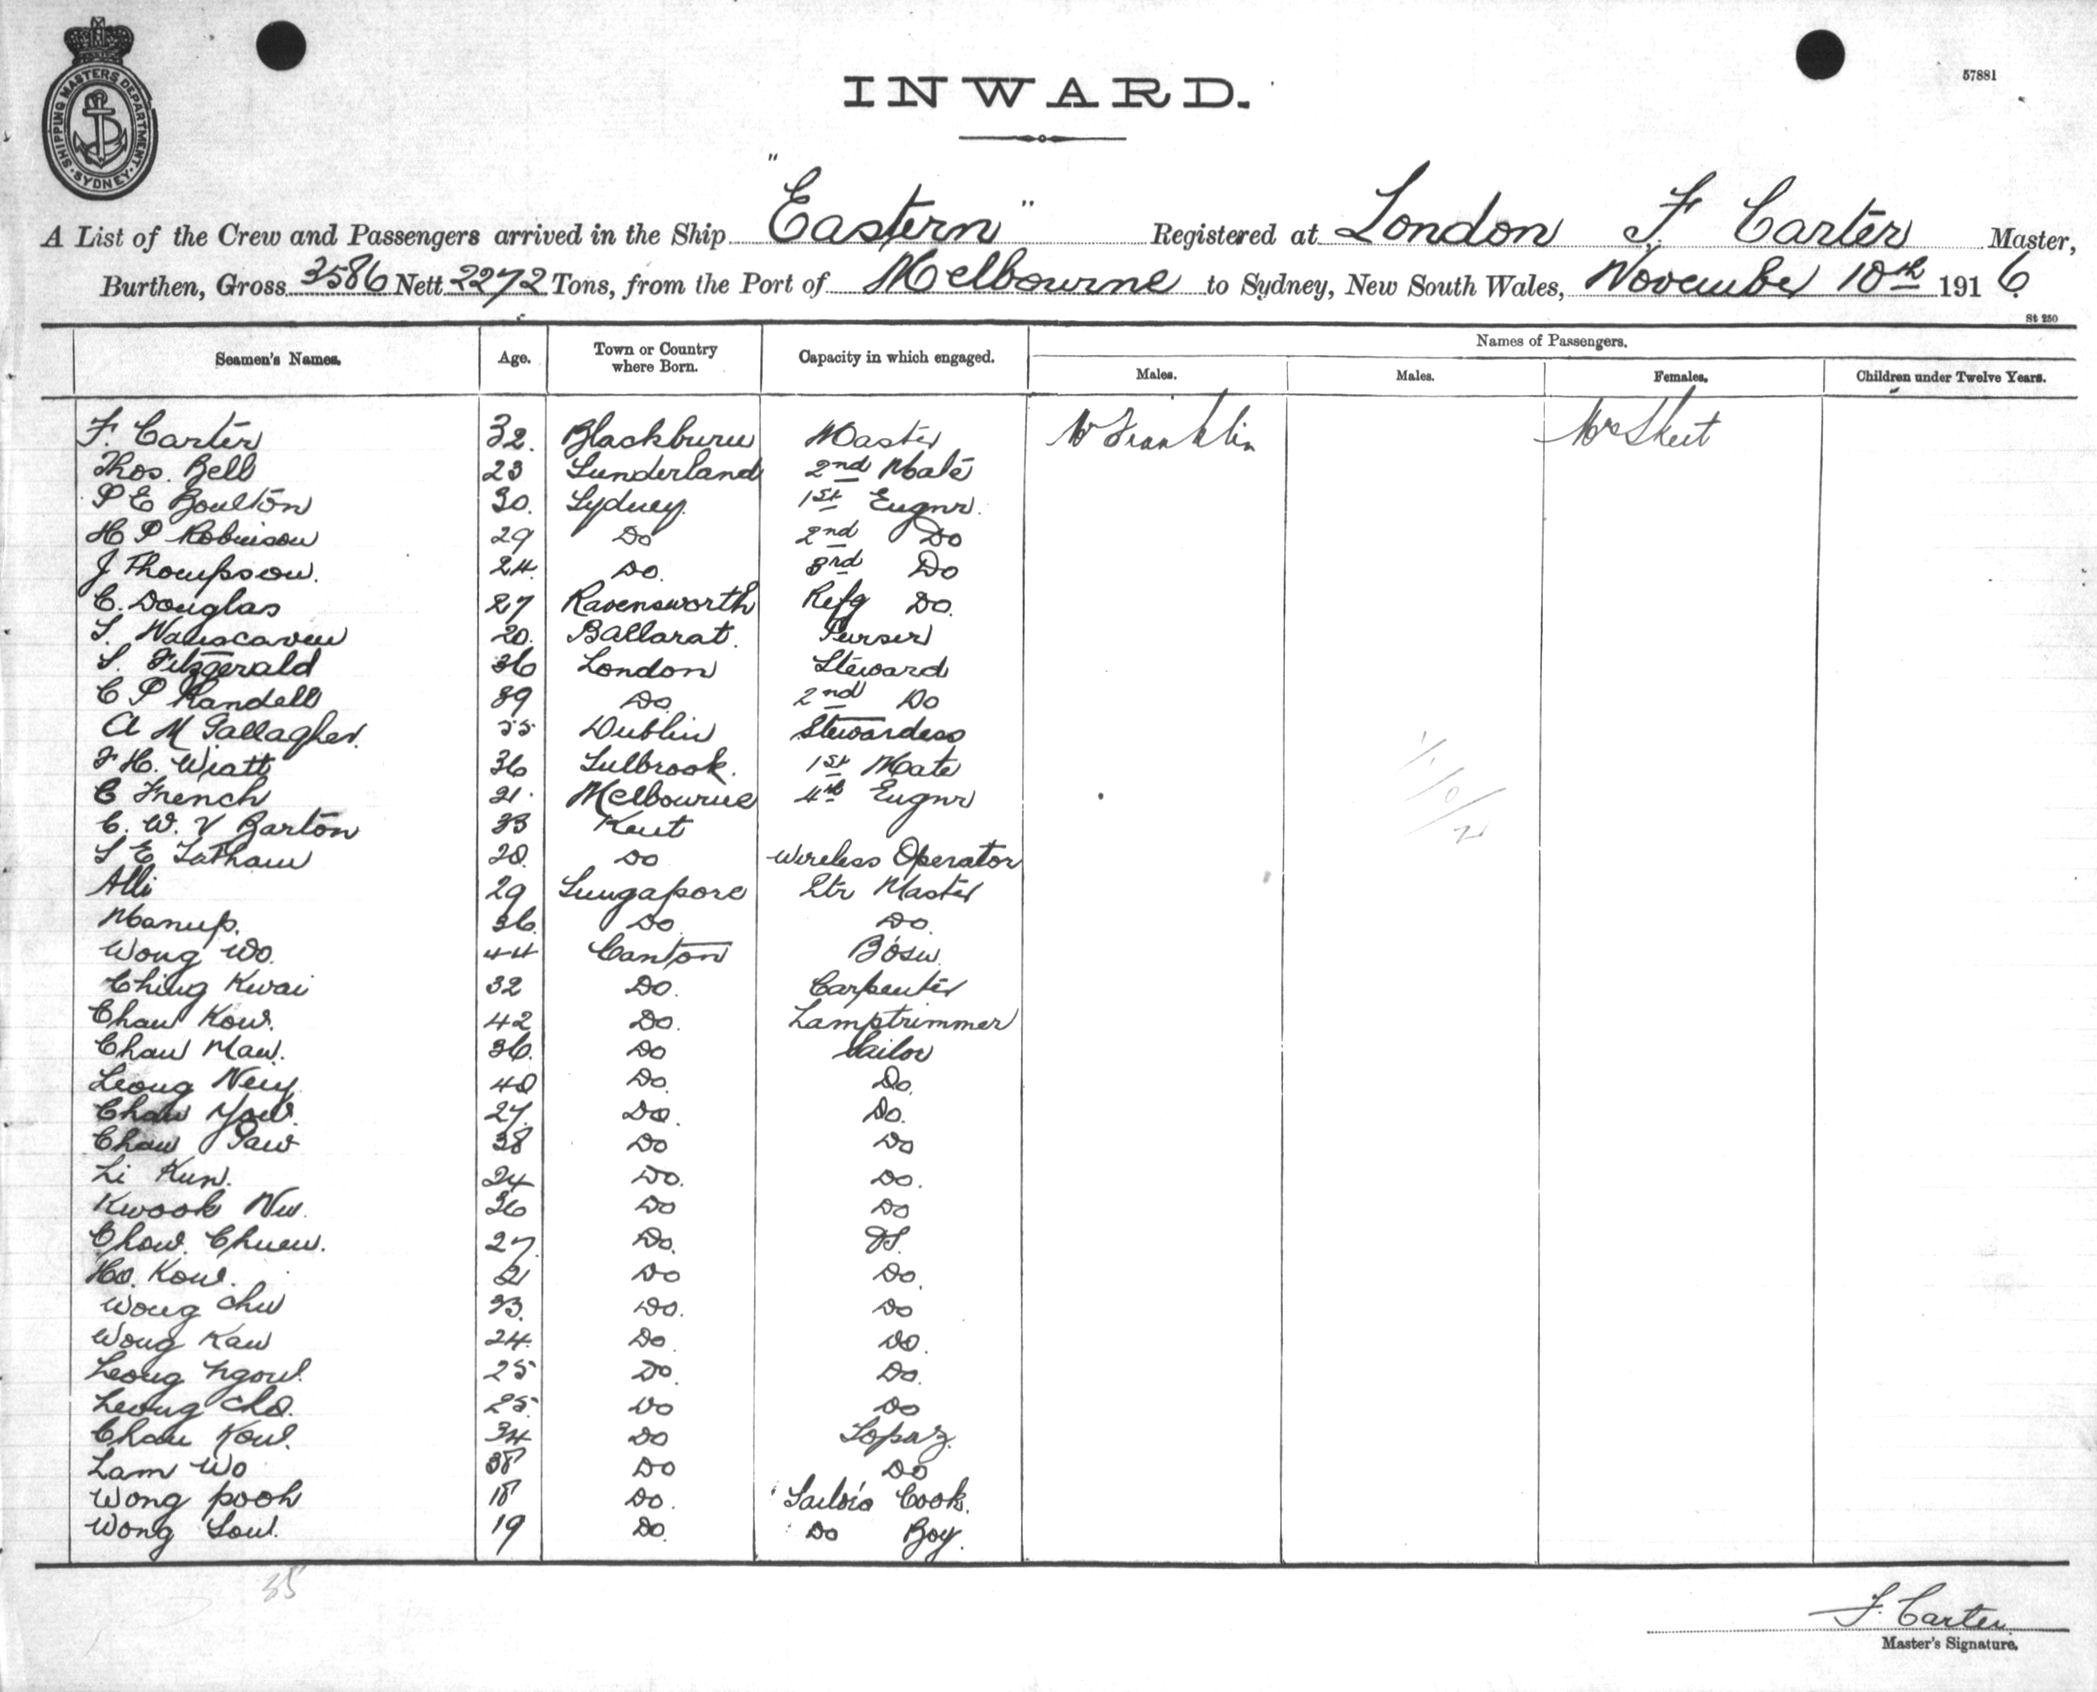 SHIPPING MASTERS DEPARTMENT. SYDNEY.
57881
INWARD.
A List of the Crew and Passengers arrived in the Ship "Eastern" Registered at London F. Carter Master,
Burthen, Gross 3586 Nett 2272 Tons, from the Port of Melbourne to Sydney, New South Wales, November 10th 1916
St 250
Seamen's Names. Age. Town or Country where Born. Capacity in which engaged. Names of Passengers.
Males. Males. Females. Children under Twelve Years.
F. Carter 32. Blackburn Master Mr Franklin Mrs Skeet
Thos. Bell 23 Sunderland 2nd Mate
P E Boulton 30. Sydney. 1st Eugnr.
H P Robinson 29 Do 2nd Do
J Thompson. 24. Do. 3rd Do
C. Douglas 27 Ravensworth Refg Do.
S. 20. Ballarat. Purser
S. Fitzgerald 36 London Steward
C P Randell 39 Do. 2nd Do
A M Gallagher. 55 Dublin Stewardess
F H. Wiatt 36 Sulbrook. 1st Mate
C French 21. Melbourne 4th Eugnr
C. W. V Barton 33 Kent
S E Latham 20. Do Wireless Operator
Alli 29 Sungapore Qtr Master
Manup. 36. Do. Do.
Wong Wo. 44 Canton Bosn.
Ching Kwai 32 Do. Carpenter
Chan Kow. 42 Do. Lamptrimmer
Chaw Maw. 36. Do Sailor
Leong Neiy 40 Do. Do.
Chaw Yow. 27. Do. Do.
Chaw Paw 38 Do Do
Li Kun. 24 Do. Do.
Kwook Nu. 36 Do Do
Chow. Chuen. 27. Do. OS.
Ho. Kow. 21 Do Do.
Wong Chu 33. Do. Do
Wong Kaw 24. Do. Do.
Leong Ngow. 25 Do. Do.
Leong Cho. 25. Do Do
Chau Kow. 34 Do Lopaz.
Lam Wo 38 Do Do
Wong pooh 18 Do. Sailors Cook.
Wong Sow. 19 Do. Do Boy.
35
F. Carter.
Master's Signature.